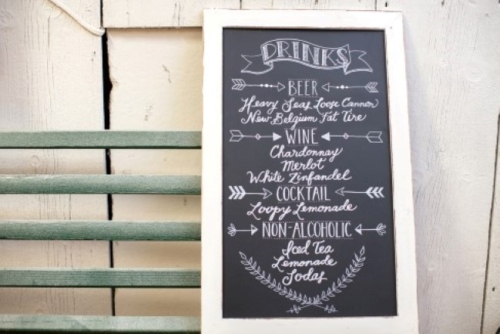 DRINKS
BEER
Heavy Seas Loose Cannon
New Belgium Fat Tire
WINE
Chardonnay
Merlot
White Zinfandel
COCKTAIL
Loopy Lemonade
NON-ALCOHOLIC
Iced Tea
Lemonade
Sodas